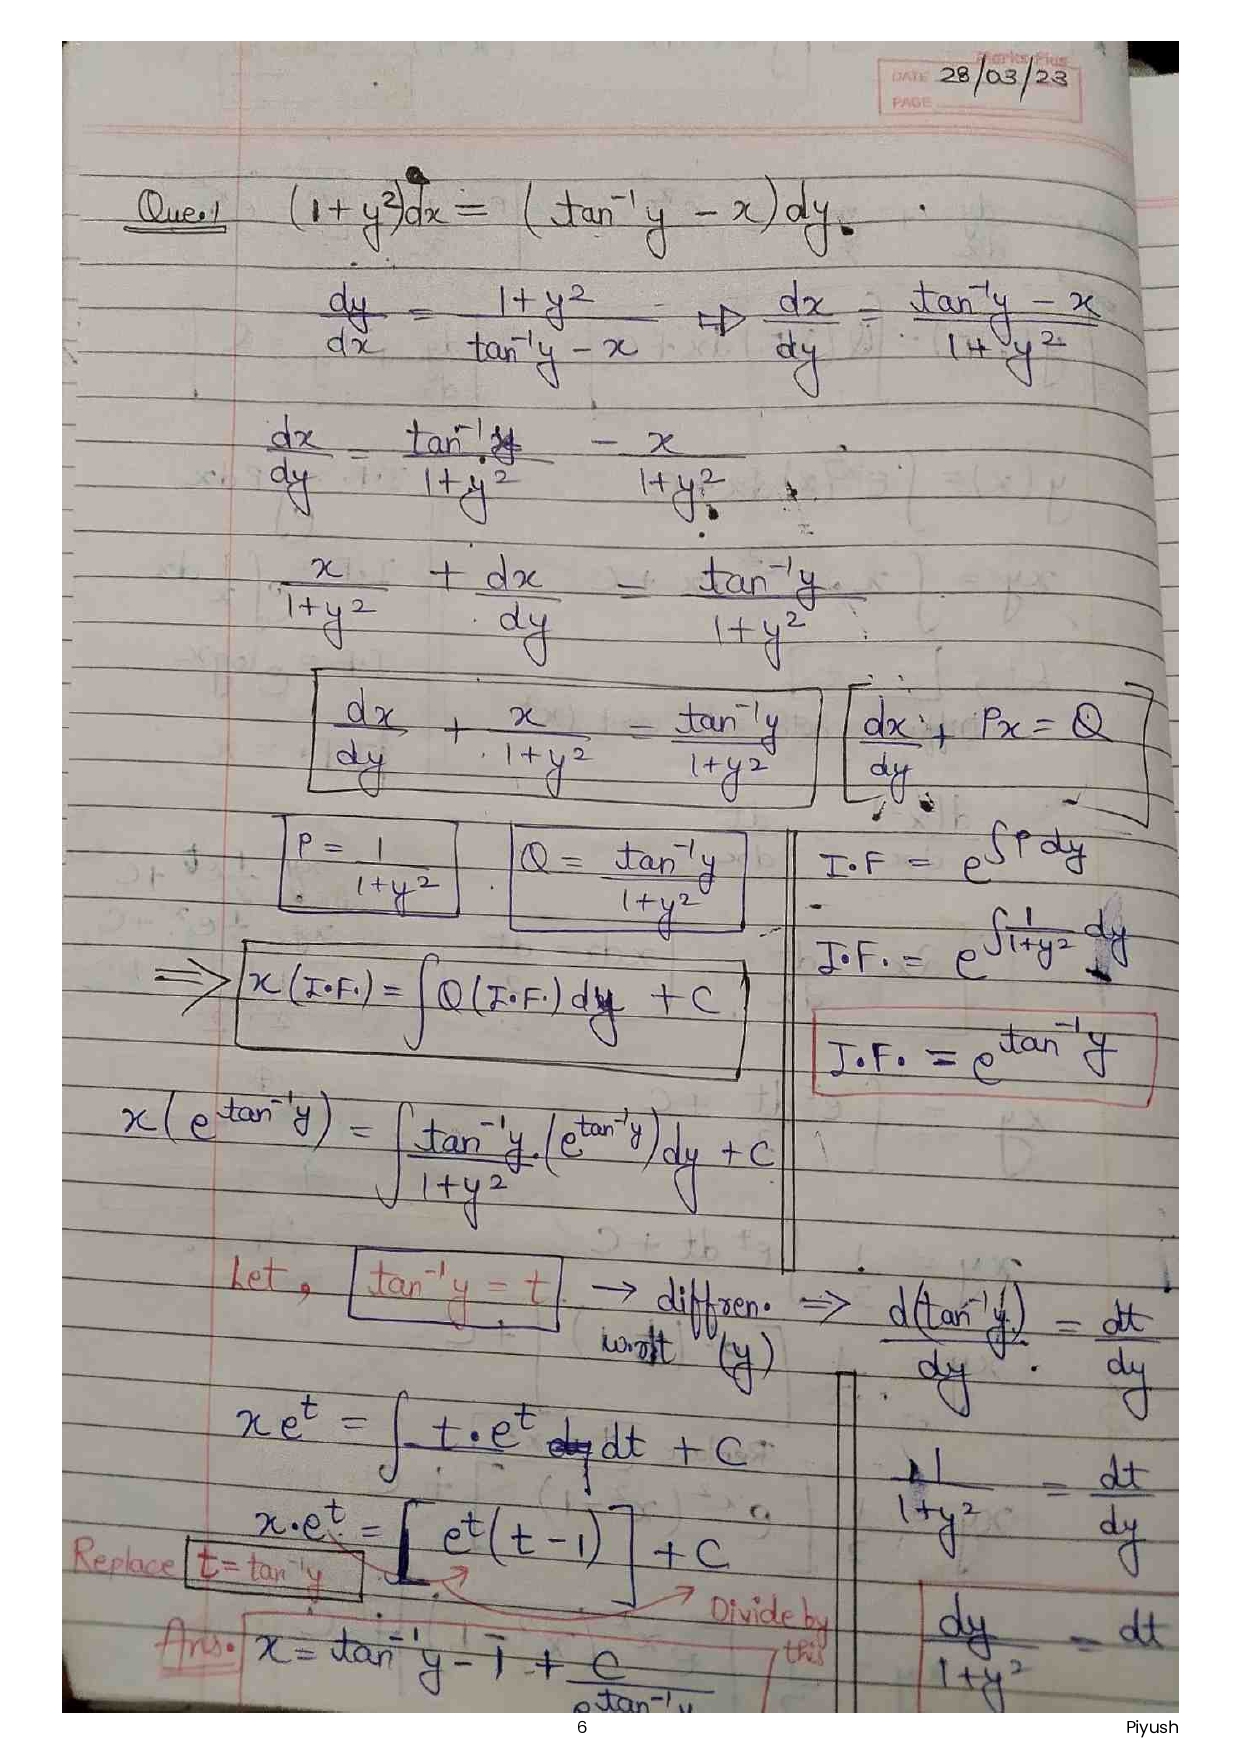 Marks Plus
DATE 28/03/23
PAGE
Que.1 (1+y²)dx = (tan⁻¹y - x)dy.
dy/dx = 1+y²/tan⁻¹y - x ⇒ dx/dy = tan⁻¹y - x/1+y²
dx/dy = tan⁻¹y/1+y² - x/1+y²
x/1+y² + dx/dy = tan⁻¹y/1+y²
dx/dy + x/1+y² = tan⁻¹y/1+y² [dx/dy + Px = Q]
P = 1/1+y² Q = tan⁻¹y/1+y²
⇒ x(I.F.) = ∫Q(I.F.)dy + C
I.F = e^∫P dy
I.F. = e^∫1/1+y² dy
I.F. = e^tan⁻¹y
x(e^tan⁻¹y) = ∫tan⁻¹y/1+y².(e^tan⁻¹y)dy + C
Let, tan⁻¹y = t → diffren. w.r.t (y) ⇒ d(tan⁻¹y)/dy = dt/dy
xeᵗ = ∫t.eᵗ dt + C
1/1+y² = dt/dy
x.eᵗ = [eᵗ(t-1)] + C
Replace t = tan⁻¹y
Divide by this
dy/1+y² = dt
Ans. x = tan⁻¹y - 1 + C/e^tan⁻¹y
6
Piyush